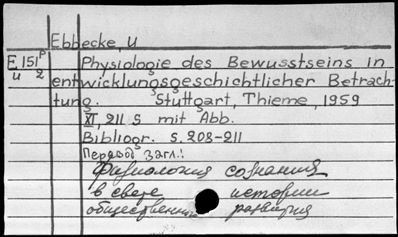 Ebbecke, U
E 151 P Physiologie des Bewusstseins in
u 2 entwicklungsgeschichtlicher Betrach-
tung. Stuttgart, Thieme, 1959
XI, 211 S mit Abb.
Bibliogr. S. 208-211
Перевод загл.:
Физиология сознания
в свете истории
общественн развития